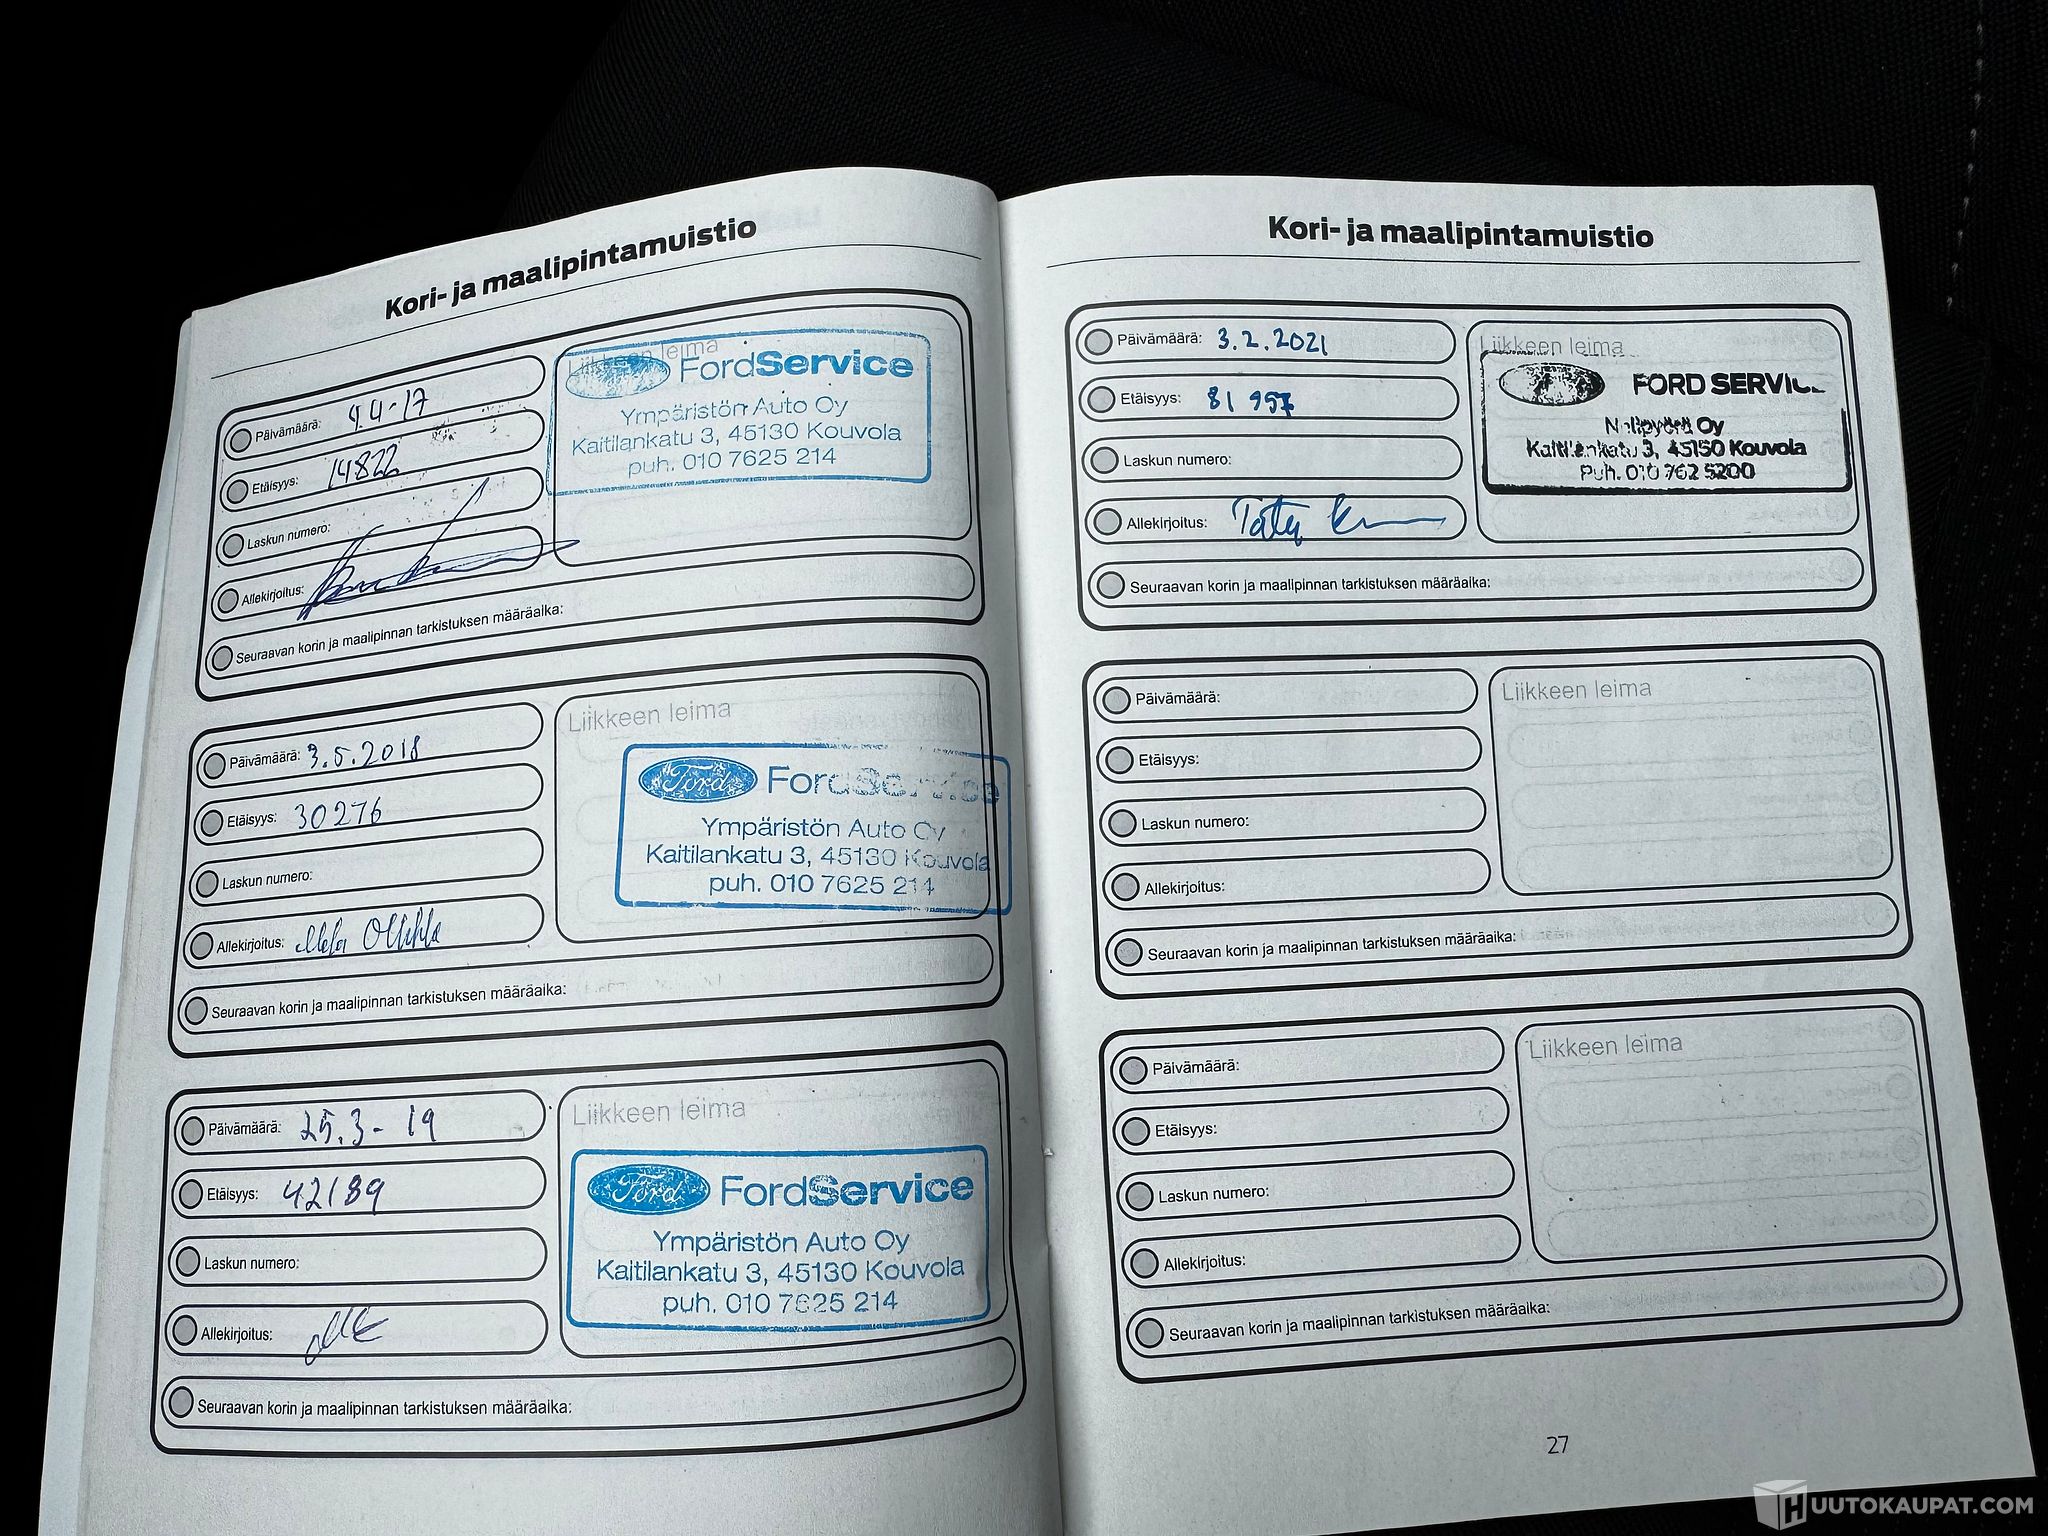 Kori- ja maalipintamuistio
Päivämäärä: 4.4-17
Etäisyys: 14822
Laskun numero:
Allekirjoitus:
Seuraavan korin ja maalipinnan tarkistuksen määräaika:
Liikkeen leima
FordService
Ympäristön Auto Oy
Kaitilankatu 3, 45130 Kouvola
puh. 010 7625 214
Päivämäärä: 3.5.2018
Etäisyys: 30276
Laskun numero:
Allekirjoitus:
Seuraavan korin ja maalipinnan tarkistuksen määräaika:
Liikkeen leima
Ford FordService
Ympäristön Auto Oy
Kaitilankatu 3, 45130 Kouvola
puh. 010 7625 214
Päivämäärä: 25.3-19
Etäisyys: 42189
Laskun numero:
Allekirjoitus:
Seuraavan korin ja maalipinnan tarkistuksen määräaika:
Liikkeen leima
Ford FordService
Ympäristön Auto Oy
Kaitilankatu 3, 45130 Kouvola
puh. 010 7625 214
Kori- ja maalipintamuistio
Päivämäärä: 3.2.2021
Etäisyys: 81 957
Laskun numero:
Allekirjoitus:
Seuraavan korin ja maalipinnan tarkistuksen määräaika:
Liikkeen leima
FORD SERVICE
Nelipyörä Oy
Kaitilankatu 3, 45150 Kouvola
Puh. 010 762 5200
Päivämäärä:
Etäisyys:
Laskun numero:
Allekirjoitus:
Seuraavan korin ja maalipinnan tarkistuksen määräaika:
Liikkeen leima
Päivämäärä:
Etäisyys:
Laskun numero:
Allekirjoitus:
Seuraavan korin ja maalipinnan tarkistuksen määräaika:
Liikkeen leima
27
HUUTOKAUPAT.COM